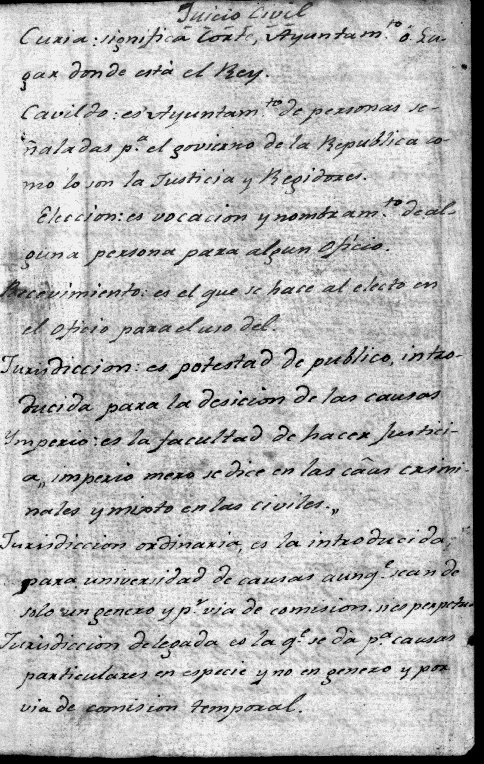 Juicio Civil
Curia: significa Corte, Ayuntam.to ó Lu-
gar donde está el Rey.
Cavildo: es Ayuntam.to de personas se-
ñaladas p.a el govierno de la Republica co-
mo lo son la Justicia y Regidores.
Eleccion: es vocacion y nombram.to de al-
guna persona para algun oficio.
Recevimiento: es el que se hace al electo en
el oficio para el uso del.
Jurisdiccion: es potestad de publico, intro-
ducida para la desicion de las causas
Ymperio: es la facultad de hacer Justici-
a,, imperio mero se dice en las cãus crimi-
nales y mixto en las civiles.,,
Jurisdiccion ordinaria, es la introducida
para universidad de causas aunq.e sean de
solo un genero y p.r via de comision.
Jurisdiccion delegada es la q.e se da p.a causas
particulares en especie y no en genero y por
via de comision temporal.